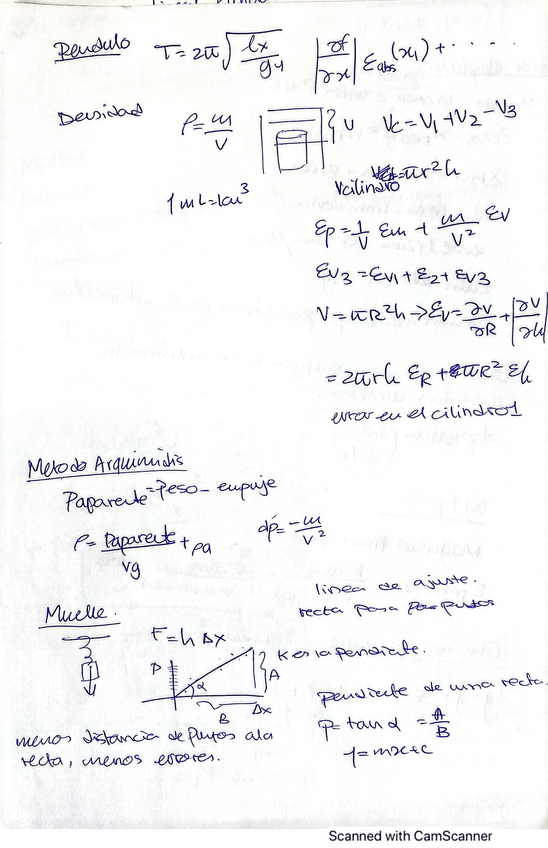 Pendulo T=2π√(lx/g4) |∂f/∂x| Eabs(x1)+ ....
Densidad ρ=m/v } V Vc=V1+V2-V3
Vcilindro=πr²h
1mL=1cm³
Ep=1/V Em+ m/V² Ev
Ev3=Ev1+E2+Ev3
V=πR²h→Ev=∂v/∂R+|∂V/∂h|
=2πrh ER+πR² Eh
error en el cilindro1
Metodo Arquimidis
Paparente=Peso-empuje
ρ=Paparente/vg+ρa dρ=-m/v²
linea de ajuste.
recta pasa por puntos
Muelle.
F=h Δx
K es la pendiente.
P α } A
B Δx
pendiente de una recta.
P=tanα=A/B
y=mx+c
menos distancia de puntos a la
recta, menos errores.
Scanned with CamScanner